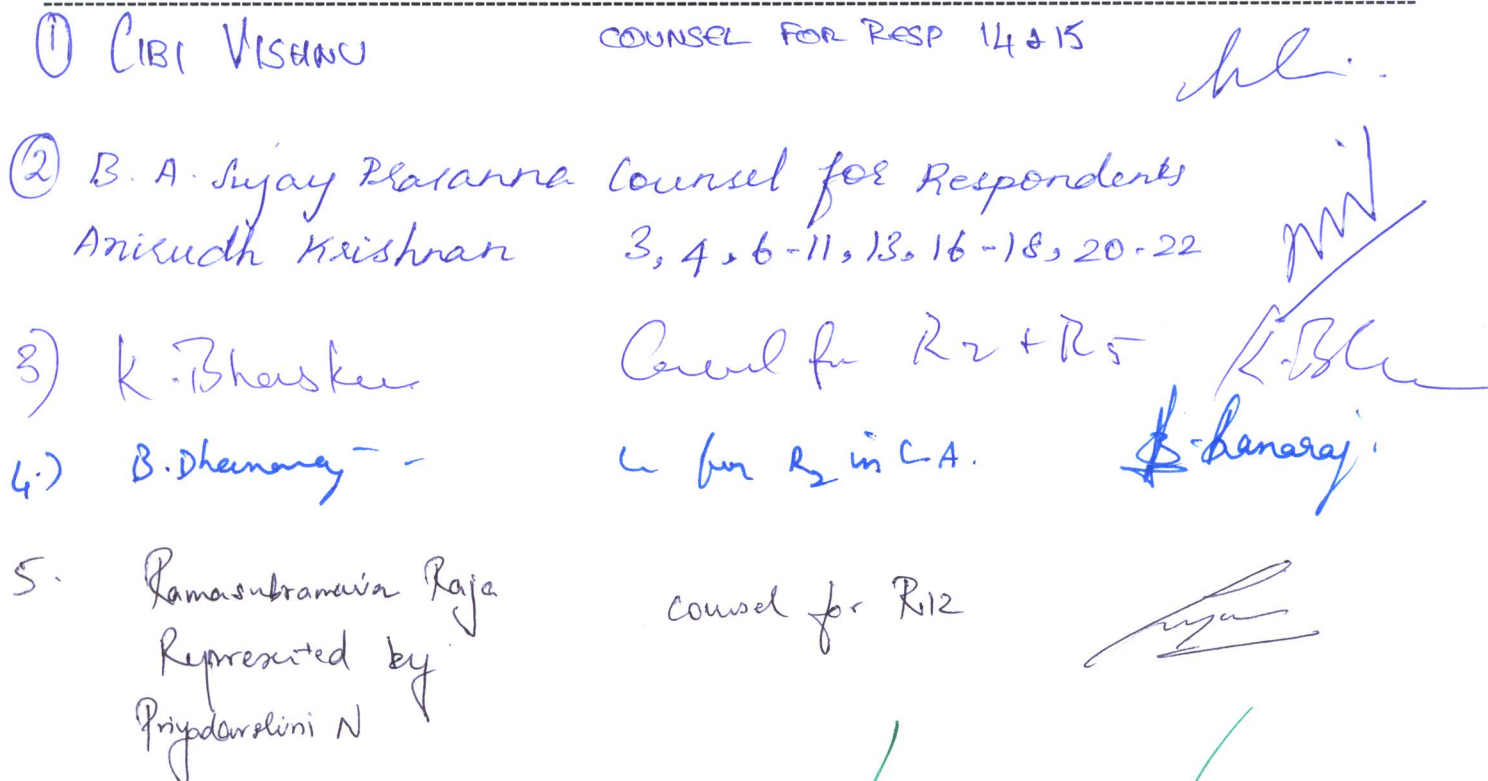 ① CIBI VISHNU COUNSEL FOR RESP 14 & 15
② B. A. Sujay Prasanna Counsel for Respondents
Anirudh Krishnan 3, 4, 6-11, 13, 16-18, 20-22
3) K. Bhaskar Counsel for R2 + R5
4.) B. Dhanaraj for R2 in CA. B. Dhanaraj.
5. Ramasubramania Raja counsel for R12
Represented by
Priyadarshini N